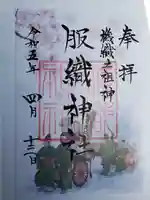 奉拝
機織之祖神
服織神社
令和五年 四月 十三日